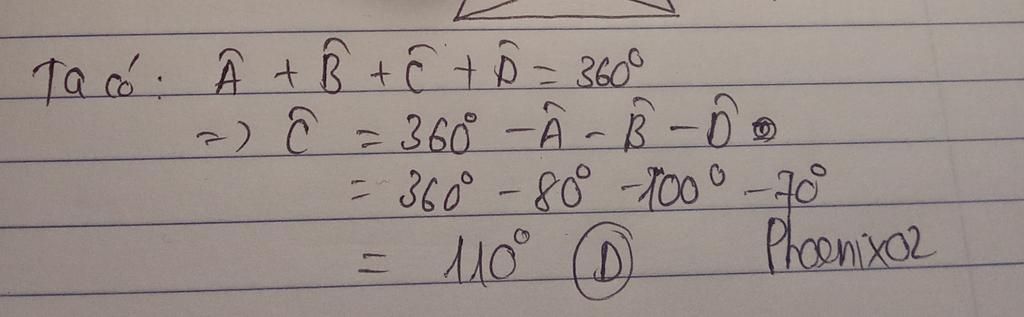 Ta có: Â + B̂ + Ĉ + D̂ = 360°
=> Ĉ = 360° - Â - B̂ - D̂
= 360° - 80° - 100° - 70°
= 110° D Phoenix02